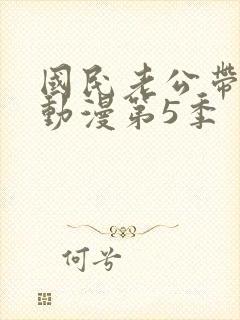 國民老公帶
動漫第5季
何兮